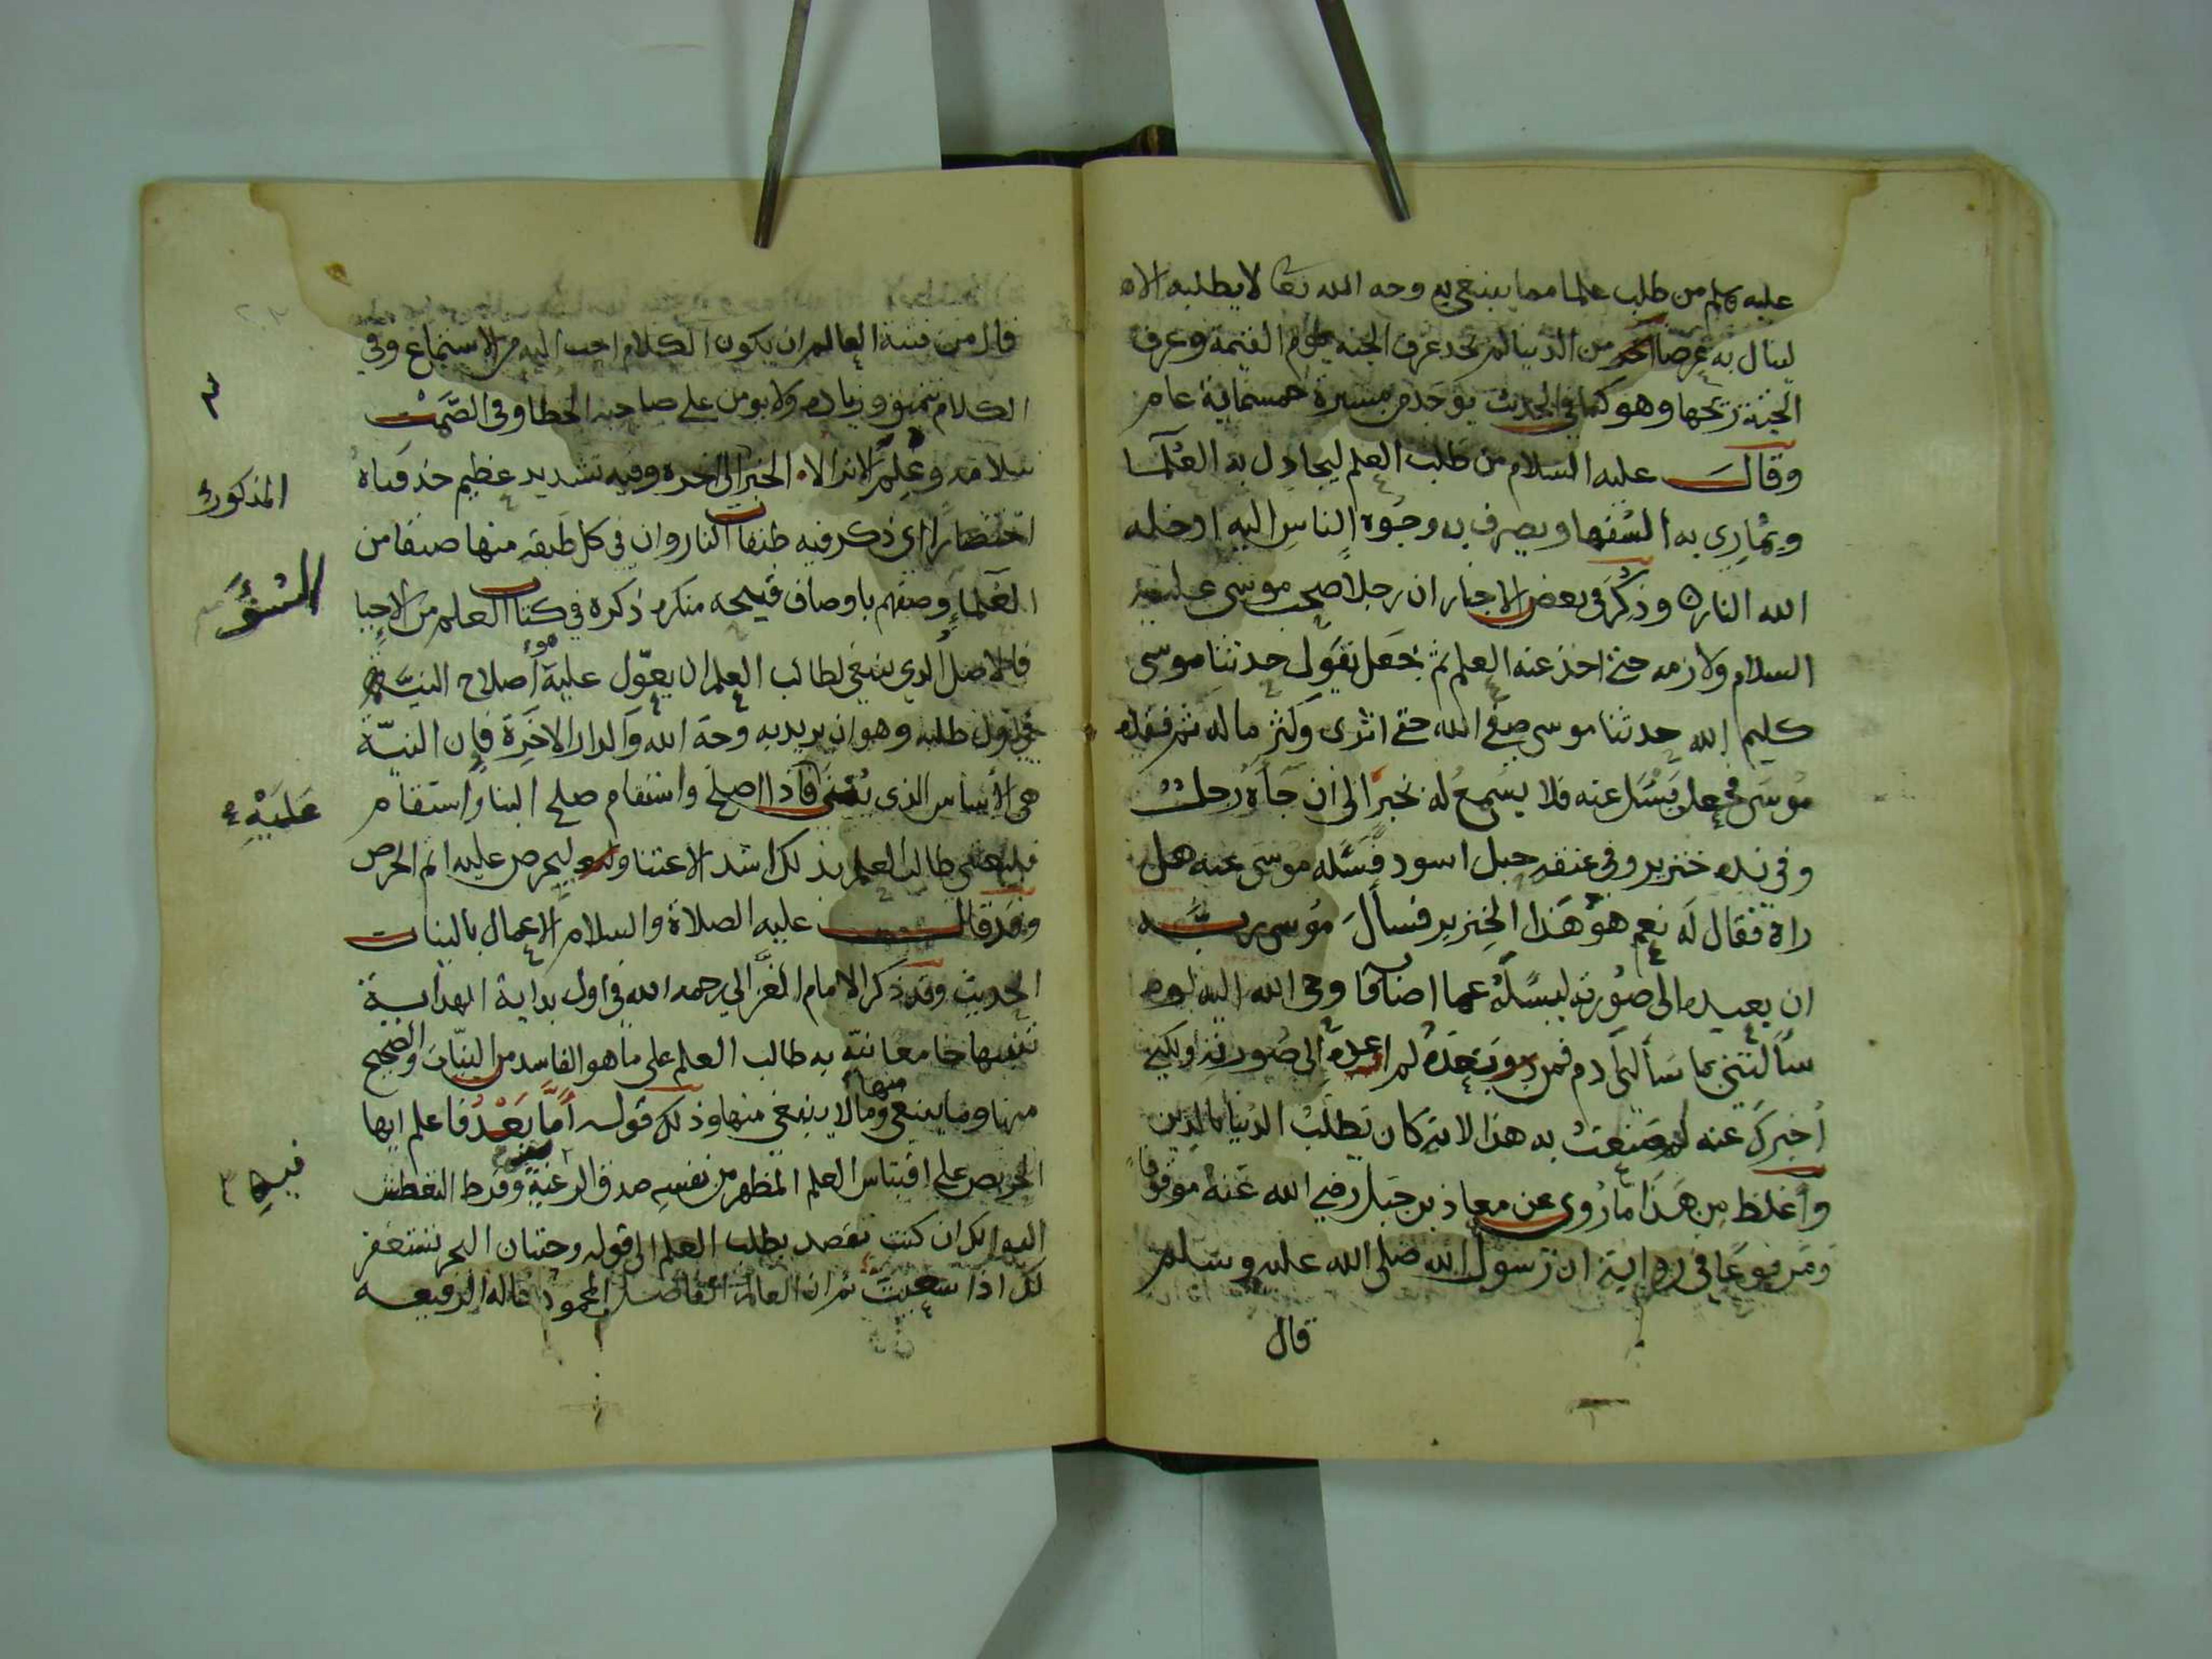 عليه وسلم من طلب علما مما يبتغى به وجه الله تعالى لا يطلبه الا
لينال به عرضا من الدنيا لم يجد عرف الجنة يوم القيمة وعرف
الجنة ريحها وهو كما في الحديث يوجد من مسيرة خمسماية عام
وقال عليه السلام من طلب العلم ليجادل به العلما
ويماري به السفها ويصرف به وجوه الناس اليه ادخله
الله النار وذكر في بعض الاخبار ان رجلا صحب موسى عليه
السلام ولازمه حتى اخذ عنه العلم ثم جعل يقول حدثنا موسى
كليم الله حدثنا موسى صفي الله حتى اثرى وكثر ماله ثم فقده
موسى فجعل يسئل عنه فلا يسمع له بخبر الى ان جاه رجل
وفي يده خنزير وفي عنقه حبل اسود فسئله موسى عنه هل
راه فقال له نعم هو هذا الخنزير فسأل موسى ربه
ان يعيده الى صورته ليسئله عما اصابه فاوحى الله اليه لو
سألتني بما سألني ادم فمن بعده لم اعده الى صورته ولكني
اخبرك عنه لم صنعت به هذا لانه كان يطلب الدنيا بالدين
وأغلظ من هذا ما روي عن معاذ بن جبل رضي الله عنه موقوفا
ومرفوعا في رواية ان رسول الله صلى الله عليه وسلم
قال
قال من فتنة العالم ان يكون الكلام احب اليه من الاستماع وفي
الكلام تنميق وزياده ولا يومن على صاحبه الخطا وفي الصمت
سلامه وعلم الخبر الى اخره وفيه تشديد عظيم حذفناه
اختصارا اي ذكر فيه طبقات النار وان في كل طبقه منها صنفا من
العلما وصفهم باوصاف قبيحه منكره ذكره في كتاب العلم من الاحيا
فالاصل الذي ينبغي لطالب العلم ان يعول عليه هو اصلاح النية
في اول طلبه وهو ان يريد به وجه الله والدار الاخرة فان النية
هي الأساس الذي يبنى فاذا اصلح واستقام صلح البنا واستقام
فليعتني طالب العلم بذلك اشد الاعتنا وليحرص عليه اتم الحرص
وقد قال عليه الصلاة والسلام الاعمال بالنيات
الحديث وقد ذكر الامام الغزالي رحمه الله في أول بداية الهداية
تنبيها جامعا نبه به طالب العلم على ما هو الفاسد من النيات والصحيح
منها وما ينبغي منها وما لا ينبغي منها وذلك قوله أما بعد فاعلم ايها
الحريص على اقتباس العلم المظهر من نفسه صدق الرغبة وفرط التعطش
اليه انك ان كنت تقصد بطلب العلم الى قوله وحيتان البحر تستغفر
لك اذا سعيت ثم ان العالم الفاضل المحمود ماله الرفيعه
٣
المذكور
السُّوَّ
عَلَيْهِ ٤
فيه